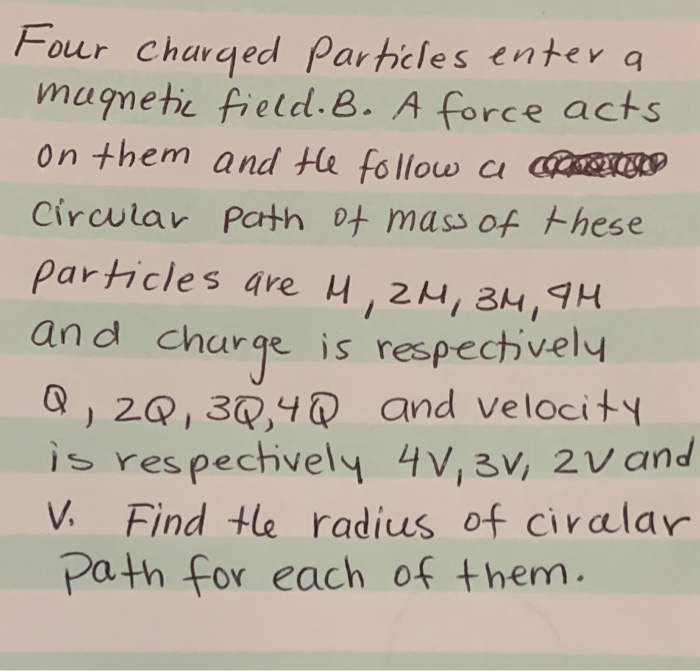 Four charged Particles enter a
magnetic field.B. A force acts
on them and the follow a
Circular path of mass of these
particles are M, 2M, 3M, 4M
and charge is respectively
Q, 2Q, 3Q, 4Q and velocity
is respectively 4V, 3V, 2V and
V. Find the radius of ciralar
Path for each of them.